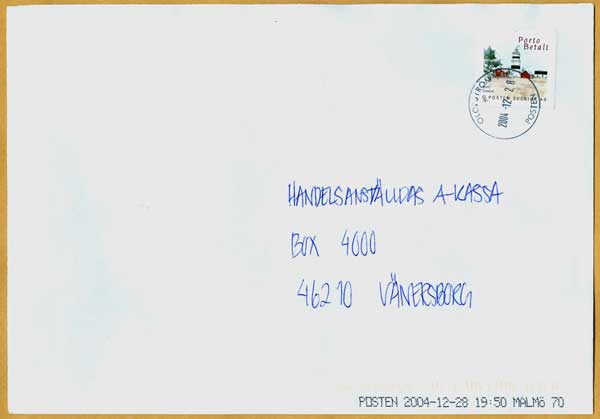 Porto
Betalt
POSTEN SVERIGE AB
2004-12-28
POSTEN
HANDELSANSTÄLLDAS A-KASSA
BOX 4000
46210 VÄNERSBORG
POSTEN 2004-12-28 19:50 MALMÖ 70